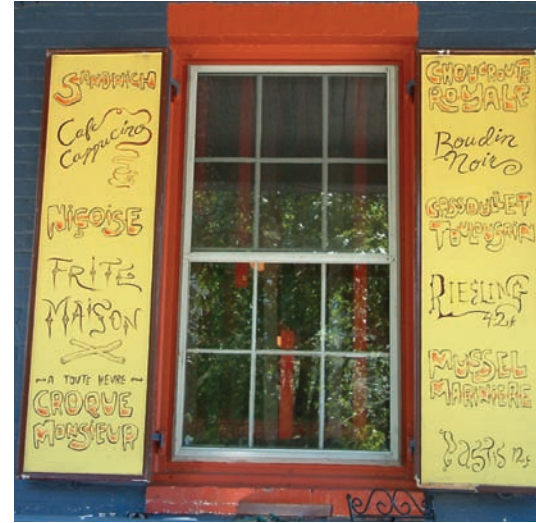 SANDWICH
Cafe
Cappucino
NIÇOISE
FRITE
MAISON
~ A TOUTE HEURE ~
CROQUE
MONSIEUR
CHOUCROUTE
ROYALE
Boudin
Noir
CASSOULLET
TOULOUSAIN
RIESLING
MUSSEL
MARINIERE
Pastis